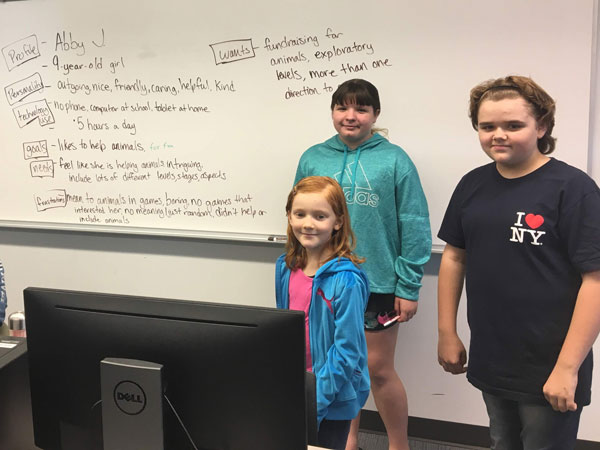 Profile - Abby J
- 9-year-old girl
Personality - outgoing, nice, friendly, caring, helpful, kind
technology use - no phone, computer at school, tablet at home
• 5 hours a day
goals - likes to help animals, for fun
needs - feel like she is helping animals, intriguing,
include lots of different levels, stages, aspects
frustrations - mean to animals in games, boring, no games that
interested her, no meaning/just random, didn't help or
include animals
wants - fundraising for
animals, exploratory
levels, more than one
direction to
adidas
I ❤ NY
DELL